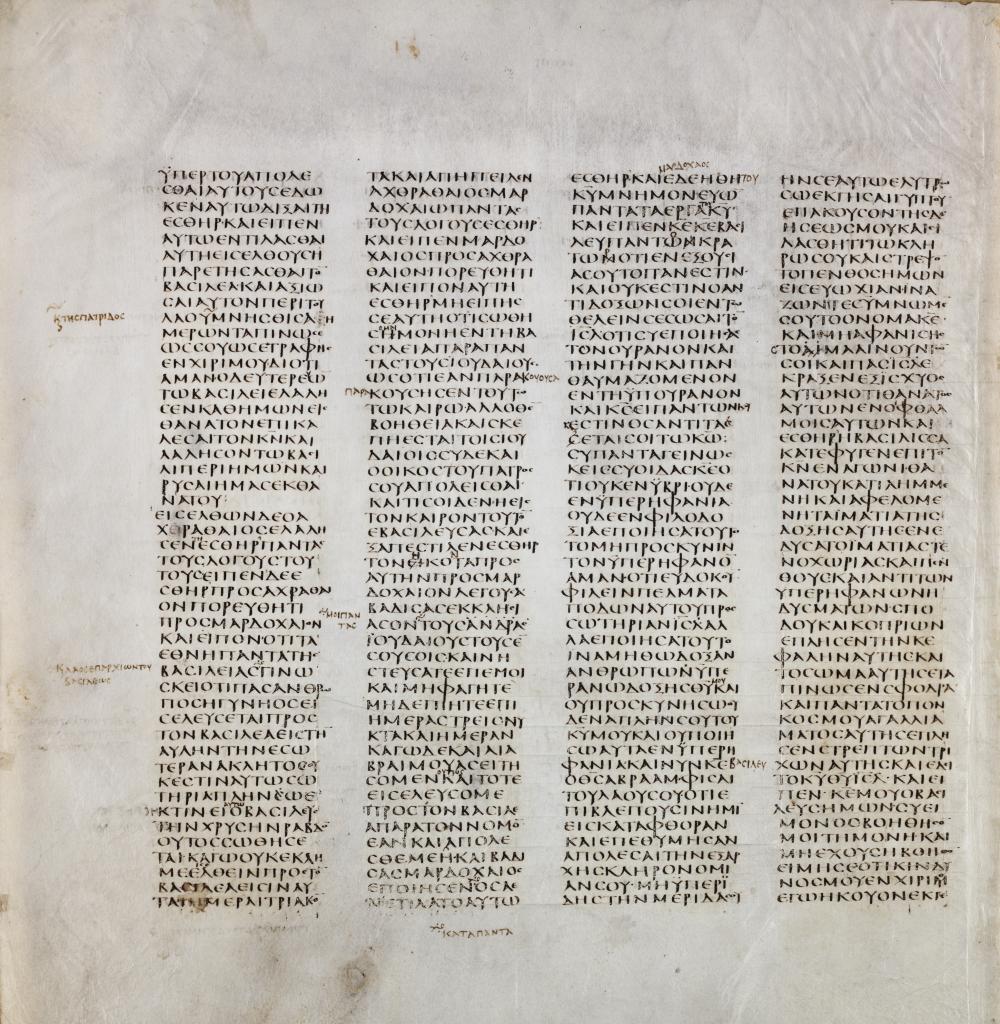 ΫΠΕΡΤΟΥΑΠΟΛΕ
ϹΘΑΙΑΥΤΟΥϹΕΔΩ
ΚΕΝΑΥΤΩΔΙΞΑΙΤΗ
ΕϹΘΗΡΚΑΙΕΙΠΕΝ
ΑΥΤΩΕΝΤΙΛΑϹΘΑΙ
ΑΥΤΗΕΙϹΕΛΘΟΥϹΗ
ΠΑΡΕΤΗϹΑϹΘΑΙΤΟ
ΒΑϹΙΛΕΑΚΑΙΑΞΙΩ
ϹΑΙΑΥΤΟΝΠΕΡΙΤΟΥ
ΛΑΟΥΜΝΗϹΘΙϹΑΗ
ΚΤΗϹΠΑΤΡΙΔΟϹ
ΜΕΡΩΝΤΑΠΙΝΩ
ΩϹϹΟΥΩϹΕΤΡΑΦΗϹ
ΕΝΧΙΡΙΜΟΥΔΙΟΤΙ
ΑΜΑΝΟΔΕΥΤΕΡΕΥΩ
ΤΩΒΑϹΙΛΕΙΕΛΑΛΗ
ϹΕΝΚΑΘΗΜΩΝΕΙϹ
ΘΑΝΑΤΟΝΕΠΙΚΑ
ΛΕϹΑΙΤΟΝΚΝΚΑΙ
ΛΑΛΗϹΟΝΤΩΒΑϹΙ
ΛΙΠΕΡΙΗΜΩΝΚΑΙ
ΡΥϹΑΙΗΜΑϹΕΚΘΑ
ΝΑΤΟΥ:
ΕΙϹΕΛΘΩΝΔΕΟΑ
ΧΘΡΑΘΑΙΟϹΕΛΑΛΗ
ϹΕΝΕϹΘΗΡΠΑΝΤΑϹ
ΤΟΥϹΛΟΓΟΥϹΤΟΥ
ΤΟΥϹΕΙΠΕΝΔΕΕ
ϹΘΗΡΠΡΟϹΑΧΡΑΘΑΙ
ΟΝΠΟΡΕΥΘΗΤΙ
ΠΡΟϹΜΑΡΔΟΧΑΙΟΝ
ΚΑΙΕΙΠΟΝΟΤΙΤΑ
ΕΘΝΗΠΑΝΤΑΤΗϹ
ΒΑϹΙΛΕΙΑϹΓΙΝΩ
ΚΛΑΟϹΕΠΑΡΧΙΩΝΤΟΥ
ΒΑϹΙΛΕΩϹ
ϹΚΕΙΟΤΙΠΑϹΑΝΘΡΩ
ΠΟϹΗΓΥΝΗΟϹΕΙ
ϹΕΛΕΥϹΕΤΑΙΠΡΟϹ
ΤΟΝΒΑϹΙΛΕΑΕΙϹΤΗ
ΑΥΛΗΝΤΗΝΕϹΩ
ΤΕΡΑΝΑΚΛΗΤΟϹΟΥ
ΚΕϹΤΙΝΑΥΤΩϹΩ
ΤΗΡΙΑΠΛΗΝΕΩΕ
ΚΤΙΝΕΙΟΒΑϹΙΛΕΥϹ
ΤΗΝΧΡΥϹΗΝΡΑΒΔΟ
ΟΥΤΟϹϹΩΘΗϹΕ
ΤΑΙΚΑΓΩΟΥΚΕΚΛΗ
ΜΕΕΛΘΕΙΝΠΡΟϹΤΟ
ΒΑϹΙΛΕΑΕΙϹΙΝΑΥ
ΤΑΙΗΜΕΡΑΙΤΡΙΑΚΟ
ΤΑΚΑΙΑΠΗΓΓΕΙΛΕΝ
ΑΧΘΡΑΘΑΙΟϹΜΑΡ
ΔΟΧΑΙΩΠΑΝΤΑϹ
ΤΟΥϹΛΟΓΟΥϹΕϹΘΗΡ
ΚΑΙΕΙΠΕΝΜΑΡΔΟ
ΧΑΙΟϹΠΡΟϹΑΧΘΡΑ
ΘΑΙΟΝΠΟΡΕΥΘΗΤΙ
ΚΑΙΕΙΠΟΝΑΥΤΗ
ΕϹΘΗΡΜΗΕΙΠΗϹ
ϹΕΑΥΤΗΟΤΙϹΩΘΗ
ϹΗΜΟΝΗΕΝΤΗΒΑ
ϹΙΛΕΙΑΠΑΡΑΠΑΝ
ΤΑϹΤΟΥϹΙΟΥΔΑΙΟΥϹ
ΩϹΟΤΙΕΑΝΠΑΡΑΚΟΥΟΥϹΑ
ΠΑΡΑΚΟΥϹΗϹΕΝΤΟΥΤΩ
ΤΩΚΑΙΡΩΑΛΛΟΘΕ
ΒΟΗΘΕΙΑΚΑΙϹΚΕ
ΠΗΕϹΤΑΙΤΟΙϹΙΟΥ
ΔΑΙΟΙϹϹΥΔΕΚΑΙ
ΟΟΙΚΟϹΤΟΥΠΑΤΡΟϹ
ϹΟΥΑΠΟΛΕΙϹΘΑΙ
ΚΑΙΤΙϹΟΙΔΕΝΗΕΙϹ
ΤΟΝΚΑΙΡΟΝΤΟΥΤΟ
ΕΒΑϹΙΛΕΥϹΑϹΚΑΙΕ
ΞΑΠΕϹΤΙΛΕΝΕϹΘΗΡ
ΤΟΝΗΚΟΤΑΠΡΟϹ
ΑΥΤΗΝΠΡΟϹΜΑΡ
ΔΟΧΑΙΟΝΛΕΓΟΥϹΑ
ΒΑΔΙϹΑϹΕΚΚΛΗϹΙ
ΜΟΙΠΑΝ
ΤΑϹ
ΑϹΟΝΤΟΥϹΑΝΔΡΑϹ
ΙΟΥΔΑΙΟΥϹΤΟΥϹΕ
ϹΟΥϹΟΙϹΚΑΙΝΗ
ϹΤΕΥϹΑΤΕΕΠΕΜΟΙ
ΚΑΙΜΗΦΑΓΗΤΕ
ΜΗΔΕΠΙΗΤΕΕΠΙ
ΗΜΕΡΑϹΤΡΕΙϹΝΥ
ΚΤΑΚΑΙΗΜΕΡΑΝ
ΚΑΓΩΔΕΚΑΙΑΙΑ
ΒΡΑΙΜΟΥΑϹΕΙΤΗ
ϹΟΜΕΝΚΑΙΤΟΤΕ
ΕΙϹΕΛΕΥϹΟΜΕ
ΠΡΟϹΤΟΝΒΑϹΙΛΕ
ΑΠΑΡΑΤΟΝΝΟΜΟ
ΕΑΝΚΑΙΑΠΟΛΕ
ϹΘΕΜΕΗΚΑΙΒΑΔΙ
ϹΑϹΜΑΡΔΟΧΑΙΟϹ
ΕΠΟΙΗϹΕΝΟϹΑΕ
ΝΕΤΙΛΑΤΟΑΥΤΩ
ΚΑΤΑΠΑΝΤΑ
ΜΑΡΔΟΧΑΙΟϹ
ΕϹΘΗΡΚΑΙΕΔΕΗΘΗΤΟΥ
ΚΥΜΝΗΜΟΝΕΥΩ
ΠΑΝΤΑΤΑΕΡΓΑΚΥ
ΚΑΙΕΙΠΕΝΚΕΚΕΒΑϹΙ
ΛΕΥΠΑΝΤΩΝΚΡΑ
ΤΩΝΟΤΙΕΝΕΞΟΥϹΙ
ΑϹΟΥΤΟΠΑΝΕϹΤΙΝ
ΚΑΙΟΥΚΕϹΤΙΝΟΑΝ
ΤΙΔΟΞΩΝϹΟΙΕΝΤΩ
ΘΕΛΕΙΝϹΕϹΩϹΑΙΤΟ
ΙϹΛΟΤΙϹΥΕΠΟΙΗϹΑϹ
ΤΟΝΟΥΡΑΝΟΝΚΑΙ
ΤΗΝΓΗΝΚΑΙΠΑΝ
ΘΑΥΜΑΖΟΜΕΝΟΝ
ΕΝΤΗΫΠΟΥΡΑΝΟΝ
ΚΑΙΚϹΕΙΠΑΝΤΩΝΚΑΙ
ΟΥΚΕϹΤΙΝΟϹΑΝΤΙΤΑ
ΞΕΤΑΙϹΟΙΤΩΚΩ:
ϹΥΠΑΝΤΑΓΕΙΝΩ
ΚΕΙϹϹΥΟΙΔΑϹΚΕΟ
ΤΙΟΥΚΕΝΫΒΡΙΟΥΔΕ
ΕΝΫΠΕΡΗΦΑΝΙΑ
ΟΥΔΕΕΝΦΙΛΟΔΟ
ΞΙΑΕΠΟΙΗϹΑΤΟΥΤΟ
ΤΟΜΗΠΡΟϹΚΥΝΙΝ
ΤΟΝΫΠΕΡΗΦΑΝΟ
ΑΜΑΝΟΤΙΕΥΔΟΚΟΥ
ΦΙΛΕΙΝΠΕΛΜΑΤΑ
ΠΟΔΩΝΑΥΤΟΥΠΡΟϹ
ϹΩΤΗΡΙΑΝΙϹΛΑΛ
ΛΑΕΠΟΙΗϹΑΤΟΥΤΟ
ΙΝΑΜΗΘΩΔΟΞΑΝ
ΑΝΘΡΩΠΩΝΥΠΕ
ΡΑΝΩΔΟΞΗϹΘΥΚΑΙ
ΟΥΠΡΟϹΚΥΝΗϹΩΟΥ
ΔΕΝΑΠΛΗΝϹΟΥΤΟΥ
ΚΥΜΟΥΚΑΙΟΥΠΟΙΗ
ϹΩΑΥΤΑΕΝΫΠΕΡΗ
ΦΑΝΙΑΚΑΙΝΥΝΚΕΒΑϹΙΛΕΥ
ΟΘϹΑΒΡΑΑΜΦΙϹΑΙ
ΤΟΥΛΑΟΥϹΟΥΟΤΙΕ
ΠΙΒΛΕΠΟΥϹΙΝΗΜΙ
ΕΙϹΚΑΤΑΦΘΟΡΑΝ
ΚΑΙΕΠΕΘΥΜΗϹΑΝ
ΑΠΟΛΕϹΑΙΤΗΝΕΞΑΡ
ΧΗϹΚΛΗΡΟΝΟΜΙ
ΑΝϹΟΥΜΗΥΠΕΡΙ
ΔΗϹΤΗΝΜΕΡΙΔΑϹΟΥ
ΗΝϹΕΑΥΤΩΕΛΥΤΡ
ϹΩΕΚΓΗϹΑΙΓΥΠΤΟΥ
ΕΠΑΚΟΥϹΟΝΤΗϹΔΕ
ΗϹΕΩϹΜΟΥΚΑΙΙ
ΛΑϹΘΗΤΙΤΩΚΛΗ
ΡΩϹΟΥΚΑΙϹΤΡΕΨΟ
ΤΟΠΕΝΘΟϹΗΜΩΝ
ΕΙϹΕΥΩΧΙΑΝΙΝΑ
ΖΩΝΤΕϹΥΜΝΩΜΕ
ϹΟΥΤΟΟΝΟΜΑΚΕ
ΚΑΙΜΗΑΦΑΝΙϹΗϹ
ϹΤΟΜΑΑΙΝΟΥΝΤΩ
ϹΟΙΚΑΙΠΑϹΙϹΛΕ
ΚΡΑΞΕΝΕΞΙϹΧΥΟϹ
ΑΥΤΩΝΟΤΙΘΑΝΑΤΟϹ
ΑΥΤΩΝΕΝΟΦΘΑΛ
ΜΟΙϹΑΥΤΩΝΚΑΙ
ΕϹΘΗΡΗΒΑϹΙΛΙϹϹΑ
ΚΑΤΕΦΥΓΕΝΕΠΙΤΟ
ΚΝΕΝΑΓΩΝΙΘΑ
ΝΑΤΟΥΚΑΤΙΛΗΜΜΕ
ΝΗΚΑΙΑΦΕΛΟΜΕ
ΝΗΤΑΙΜΑΤΙΑΤΗϹ
ΔΟΞΗϹΑΥΤΗϹΕΝΕ
ΔΥϹΑΤΟΪΜΑΤΙΑϹΤΕ
ΝΟΧΩΡΙΑϹΚΑΙΠΕΝ
ΘΟΥϹΚΑΙΑΝΤΙΤΩΝ
ΥΠΕΡΗΦΑΝΩΝΗ
ΔΥϹΜΑΤΩΝϹΠΟ
ΔΟΥΚΑΙΚΟΠΡΙΩΝ
ΕΠΛΗϹΕΝΤΗΝΚΕ
ΦΑΛΗΝΑΥΤΗϹΚΑΙ
ΤΟϹΩΜΑΑΥΤΗϹΕΤΑ
ΠΙΝΩϹΕΝϹΦΟΔΡΑ
ΚΑΙΠΑΝΤΑΤΟΠΟΝ
ΚΟϹΜΟΥΑΓΑΛΛΙΑ
ΜΑΤΟϹΑΥΤΗϹΕΠΛΗ
ϹΕΝϹΤΡΕΠΤΩΝΤΡΙ
ΧΩΝΑΥΤΗϹΚΑΙΕΔΕΙ
ΤΟΚΥΘΥΙϹΛΚΑΙΕΙ
ΠΕΝΚΕΜΟΥΟΒΑϹΙ
ΛΕΥϹΗΜΩΝϹΥΕΙ
ΜΟΝΟϹΒΟΗΘΗϹΟ
ΜΟΙΤΗΜΟΝΗΚΑΙ
ΜΗΕΧΟΥϹΗΒΟΗΘ
ΕΙΜΗϹΕΟΤΙΚΙΝΔΥ
ΝΟϹΜΟΥΕΝΧΙΡΙΜΟΥ
ΕΓΩΗΚΟΥΟΝΕΚΓΕ